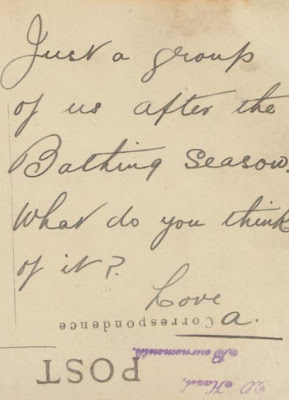 Just a group
of us after the
Bathing season.
What do you think
of it?
Love
a.
Correspondence
POST
Bournemouth.